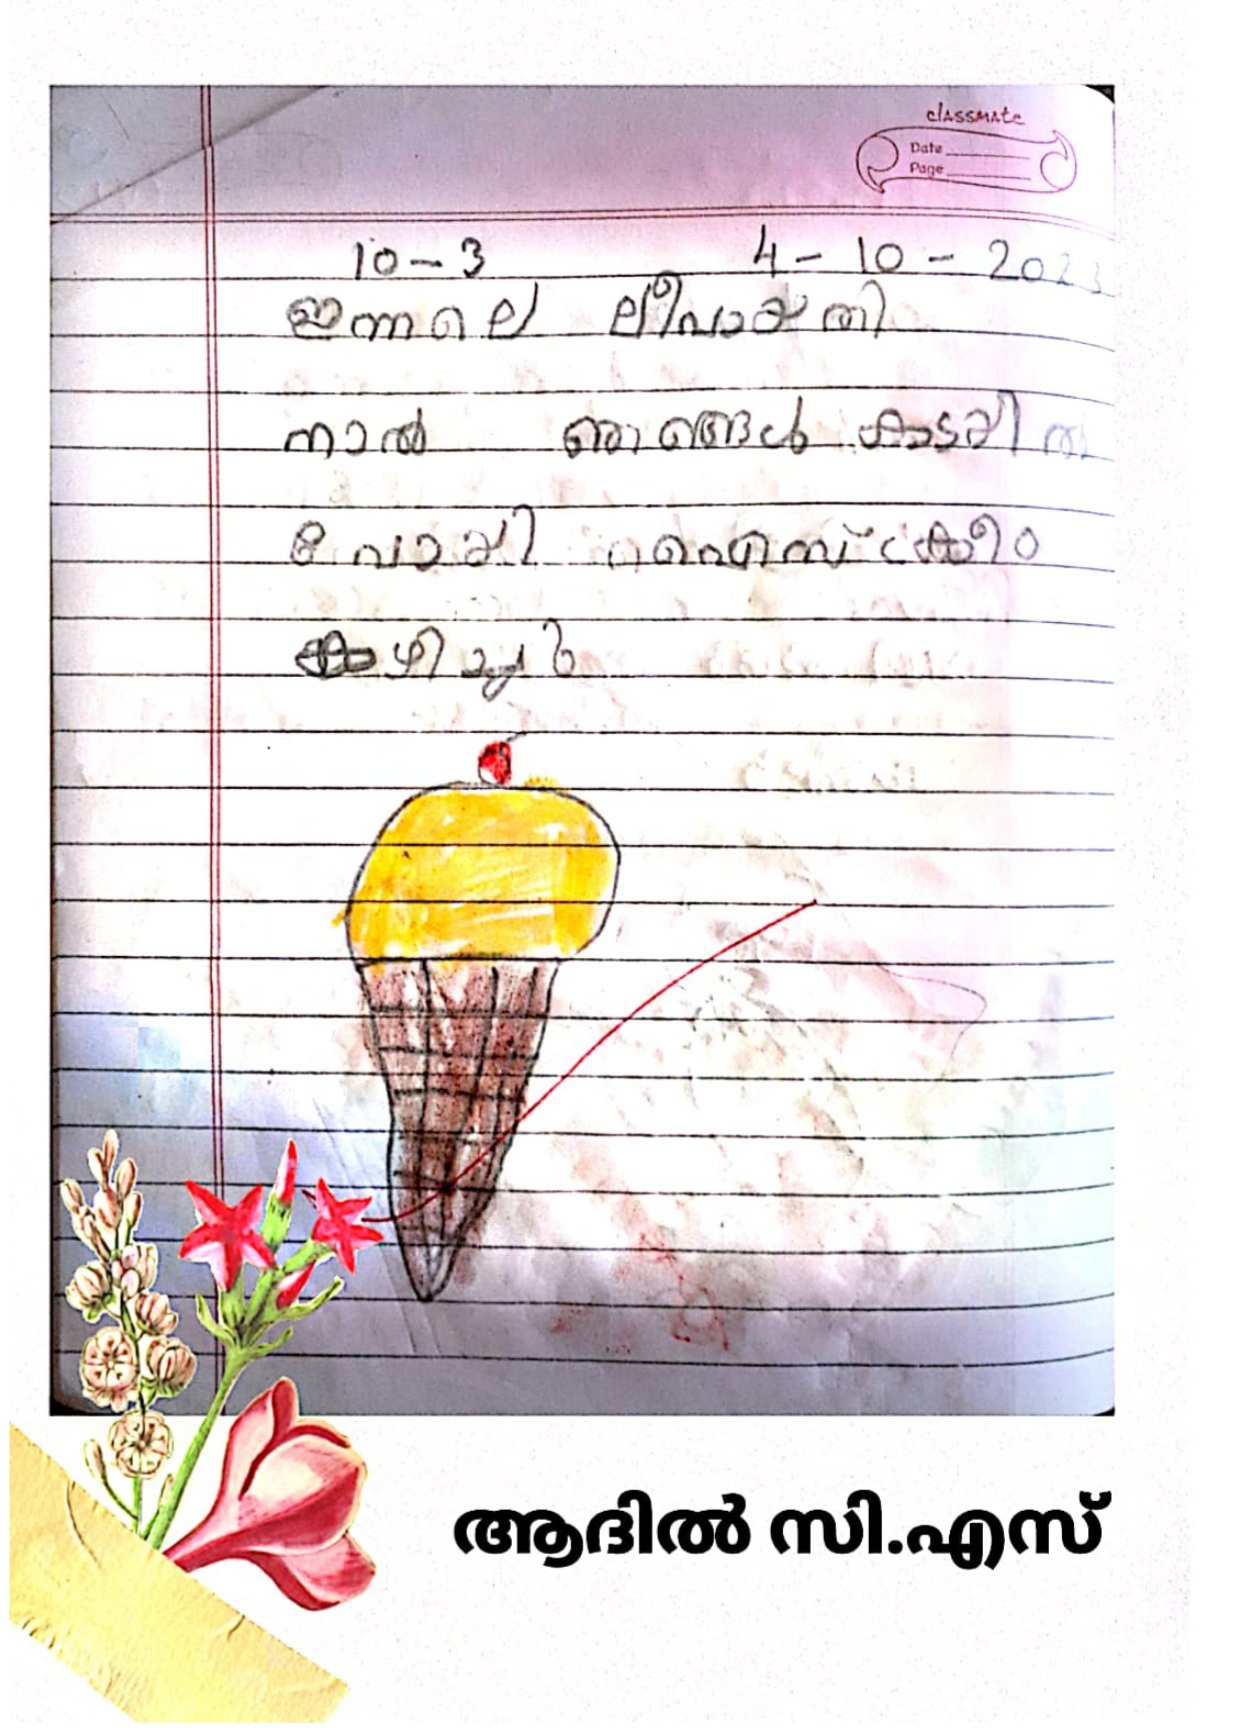 classmate
Date
Page
10-3 4-10-2023
ഇന്നലെ ലീവായതി
നാൽ ഞങ്ങൾ കടയിൽ
പോയി ഐസ്ക്രീം
കഴിച്ചു
ആദിൽ സി.എസ്